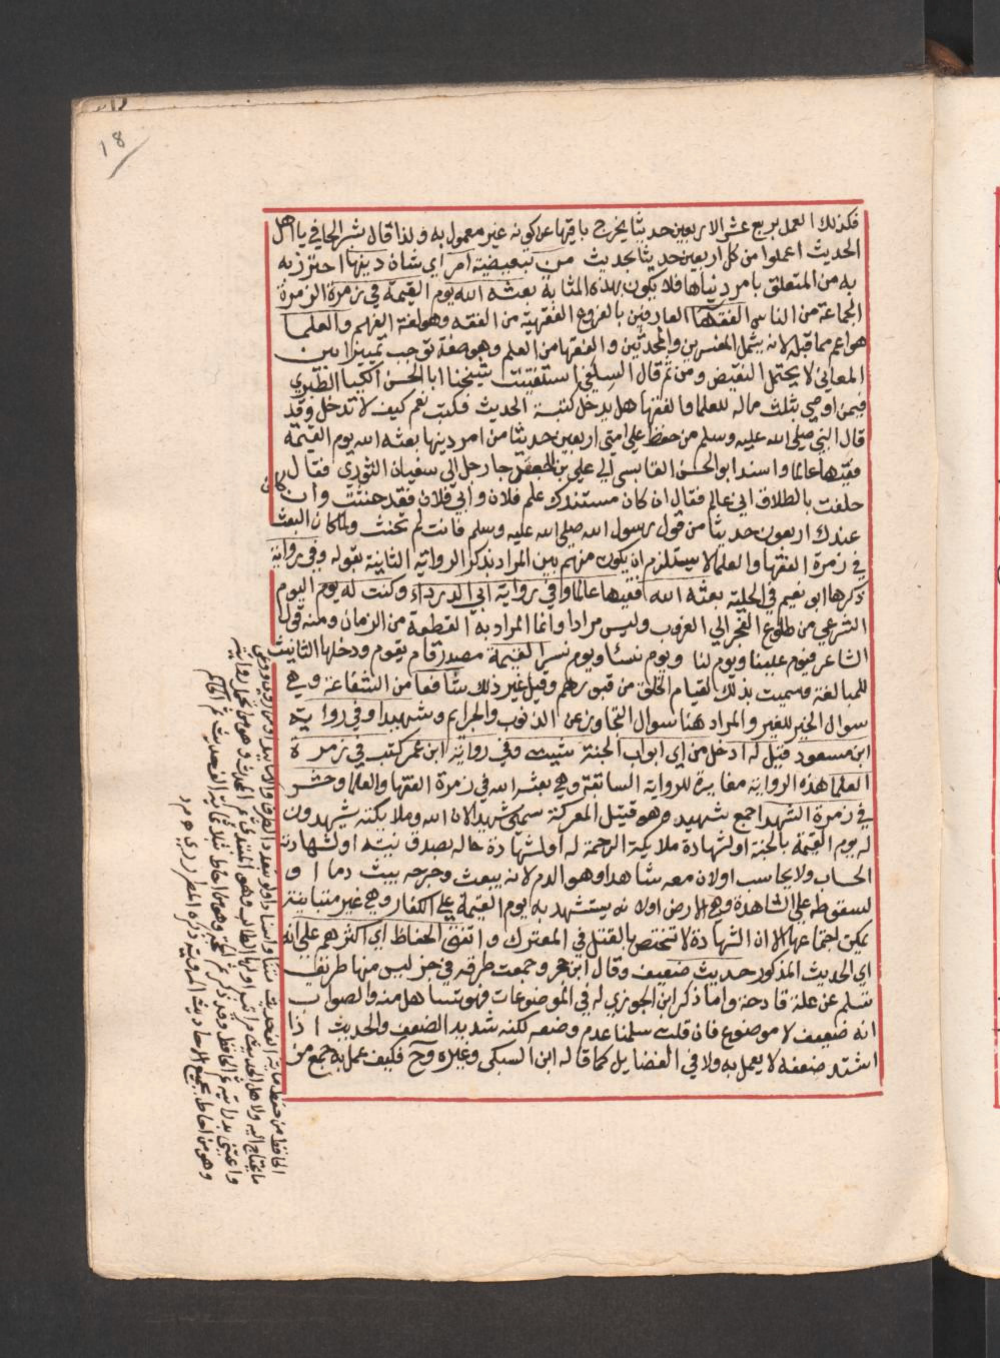 18
فكذلك العمل بربع عشر الاربعين حديثا يخرج باقيها عن كونه غير معمول به ولذا قال بشر الحافي يا اهل
الحديث اعملوا من كل اربعين حديثا بحديث من تبعيضية امر اي شان دينها احترز به
به من المتعلق بامر دنياها فلا يكون بهذه المثابة بعثه الله يوم القيمة في زمرة الزمرة
الجماعة من الناس الفقها العارفين بالفروع الفقهية من الفقه وهو لغة الفهم والعلما
هو اعم مما قبله لانه يشمل المفسرين والمحدثين والفقها من العلم وهو صفة توجب تمييزا بين
المعاني لا يحتمل النقيض ومن ثم قال السلفي استفتيت شيخنا ابا الحسن الكيا الطبري
فيمن اوصي بثلث ماله للعلما والفقها هل يدخل كتبة الحديث فكتب نعم كيف لا تدخل وقد
قال النبي صلى الله عليه وسلم من حفظ علي امتي اربعين حديثا من امر دينها بعثه الله يوم القيمة
فقيها عالما واسند ابو الحسن القابسي الي علي بن الجعفر جا رجل الي سفيان الثوري فقال
حلفت بالطلاق اني عالم فقال ان كان مستندك علم فلان وابي فلان فقد حنثت وان كان
عندك اربعون حديثا من قول رسول الله صلى الله عليه وسلم فانت لم تحنث ولما كان البعث
في زمرة الفقها والعلما لا يستلزم ان يكون منهم بين المراد بذكر الرواية الثانية بقوله وفي رواية
ذكرها ابو نعيم في الحلية بعثه الله فقيها عالما وفي رواية ابي الدرداء وكنت له يوم اليوم
الشرعي من طلوع الفجر الي الغروب وليس مرادا وانما المراد به القطعة من الزمان ومنه قول
الشاعر فيوم علينا ويوم لنا ويوم نساء ويوم نسر القيمة مصدر قام يقوم ودخلها التانيث
للمبالغة وسميت بذلك لقيام الخلق من قبورهم وقيل غير ذلك شافعا من الشفاعة وهي
سوال الخير للغير والمراد هنا سوال التجاوز عن الذنوب والجرايم وشهيدا وفي رواية
ابن مسعود قيل له ادخل من اي ابواب الجنة شيت وفي رواية ابن عمر كتب في زمرة
العلما هذه الرواية مغايرة للرواية السابقة وهي بعثه الله في زمرة الفقها والعلما وحشر
في زمرة الشهدا جمع شهيد وهو قتيل المعركة سمي شهيدا لان الله وملايكته يشهدون
له يوم القيمة بالجنة او لشهادة ملايكة الرحمة له او لشهادة حاله بصدق نيته او لشهادته
الحساب ولا يحاسب او لان معه شاهدا وهو الدم لانه يبعث وجرحه يبث دما او
لسقوطه علي الشاهدة وهي الارض او لانه يستشهد به يوم القيمة علي الكفار وهي غير متباينة
يمكن اجتماعها الا ان الشهادة لا تختص بالقتل في المعترك واتفق الحفاظ اي اكثرهم علي انه
اي الحديث المذكور حديث ضعيف وقال ابن حجر وجمعت طرقه في جز ليس منها طريق
تسلم عن علة قادحة واما ذكر ابن الجوزي له في الموضوعات فهو تساهل منه والصواب
انه ضعيف لا موضوع فان قلت سلمنا عدم وضعه لكنه شديد الضعف والحديث اذا
اشتد ضعفه لا يعمل به ولا في الفضايل كما قاله ابن السبكي وغيره وح فكيف عمل به جمع من
الحافظ من حفظ ماية الف حديث متنا واسنادا ولو بتعدد الطرق والاسانيد
ما يحتاج اليه ولاهل الحديث مراتب اولها الطالب وهو المبتدي ثم المحدث وهو من تحمل رواية
واعتني بدراية ثم الحافظ وقد ذكر ثم الحجة وهو من احاط بثلاثماية الف حديث ثم الحاكم
وهو من احاط بجميع الاحاديث المروية ذكره المطرزي